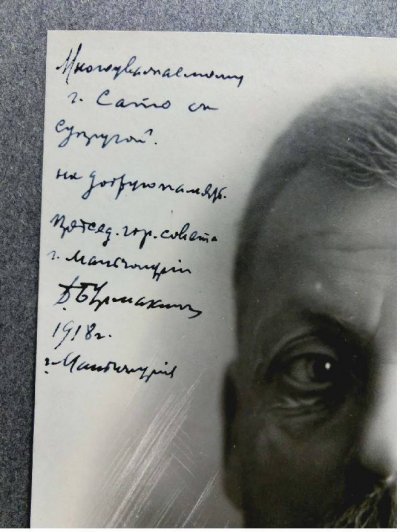 Многоуважаемому
г. Сато съ
супругой.
на добрую память.
Председ. гор. совета
г. Маньчжурiи
1918 г.
г. Маньчжурiя